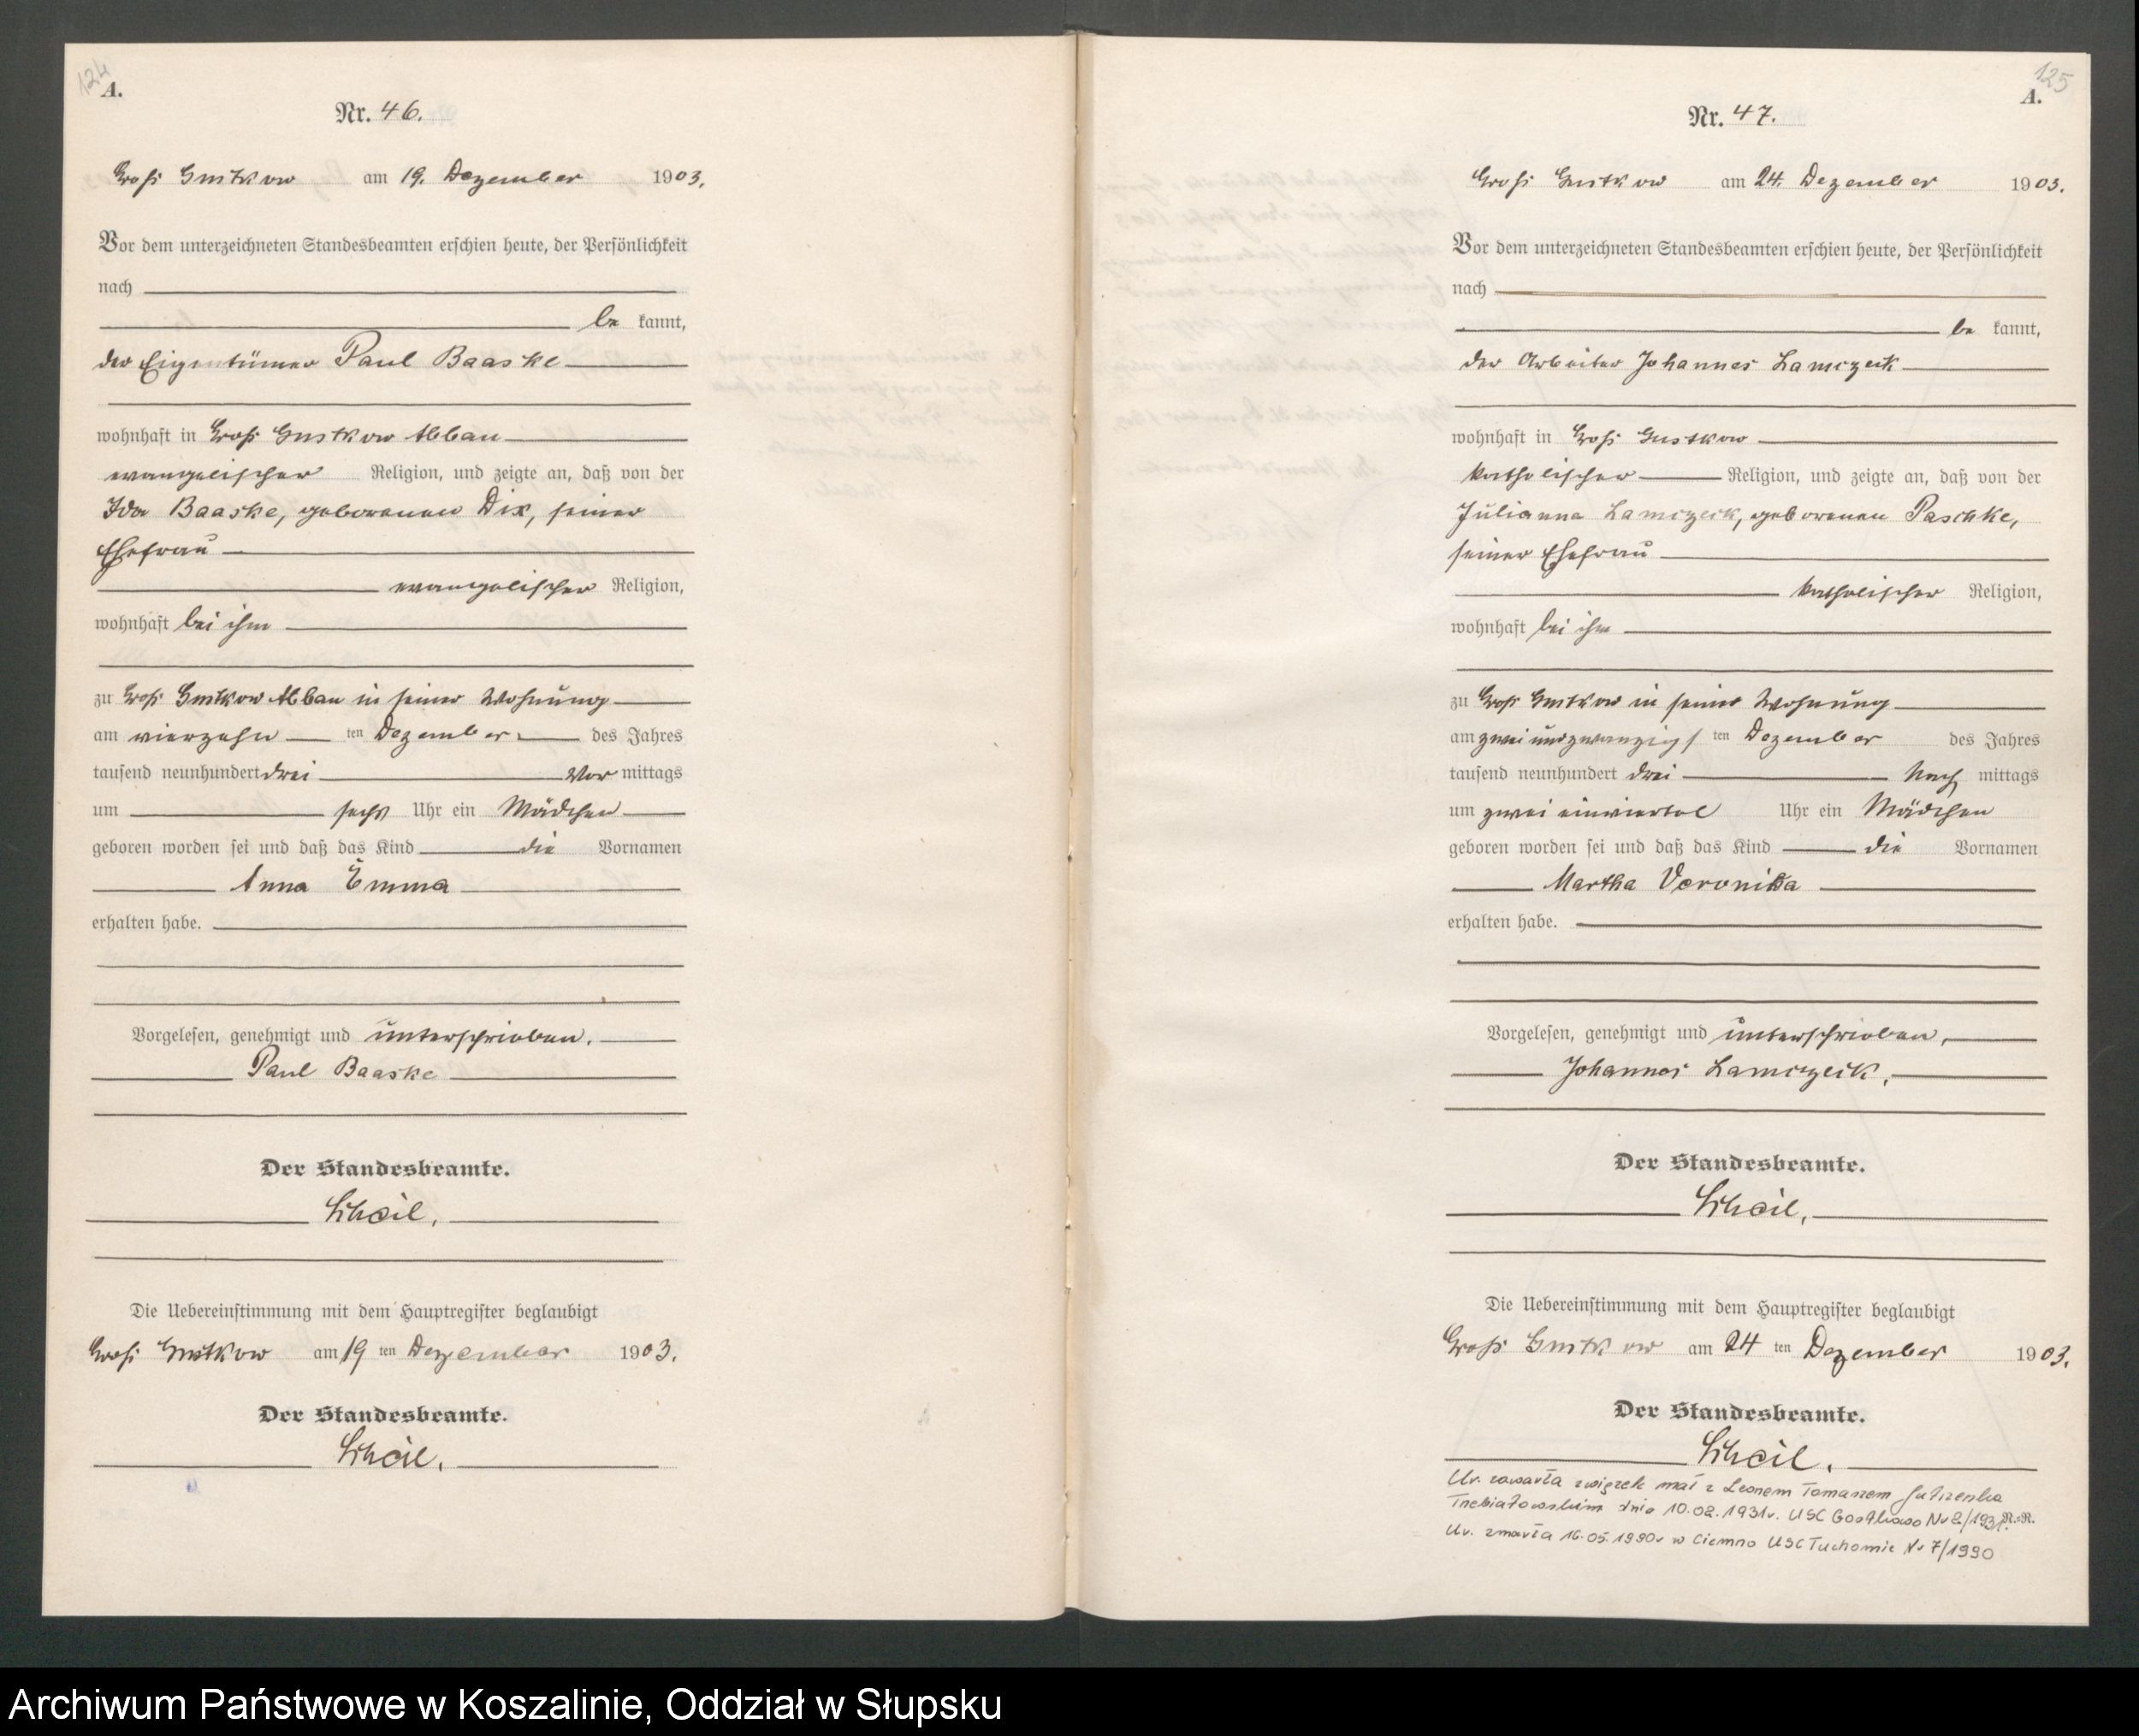 124
A.
Nr. 46.
Groß Gustkow am 19. Dezember 1903.
Vor dem unterzeichneten Standesbeamten erschien heute, der Persönlichkeit
nach
be kannt,
der Eigentümer Paul Baaske
wohnhaft in Groß Gustkow Abbau
evangelischer Religion, und zeigte an, daß von der
Ida Baaske, geborenen Dix, seiner
Ehefrau
evangelischer Religion,
wohnhaft bei ihm
zu Groß Gustkow Abbau in seiner Wohnung
am vierzehn ten Dezember des Jahres
tausend neunhundert drei Vor mittags
um sechs Uhr ein Mädchen
geboren worden sei und daß das Kind die Vornamen
Anna Emma
erhalten habe.
Vorgelesen, genehmigt und unterschrieben.
Paul Baaske
Der Standesbeamte.
Die Uebereinstimmung mit dem Hauptregister beglaubigt
Groß Gustkow am 19 ten Dezember 1903.
Der Standesbeamte.
125
A.
Nr. 47.
Groß Gustkow am 24. Dezember 1903.
Vor dem unterzeichneten Standesbeamten erschien heute, der Persönlichkeit
nach
be kannt,
der Arbeiter Johannes Lamczeck
wohnhaft in Groß Gustkow
katholischer Religion, und zeigte an, daß von der
Julianna Lamczeck, geborenen Paschke,
seiner Ehefrau
katholischer Religion,
wohnhaft bei ihm
zu Groß Gustkow in seiner Wohnung
am zweiundzwanzigs ten Dezember des Jahres
tausend neunhundert drei Nach mittags
um zwei einviertel Uhr ein Mädchen
geboren worden sei und daß das Kind die Vornamen
Martha Veronika
erhalten habe.
Vorgelesen, genehmigt und unterschrieben,
Johannes Lamczeck.
Der Standesbeamte.
Die Uebereinstimmung mit dem Hauptregister beglaubigt
Groß Gustkow am 24 ten Dezember 1903.
Der Standesbeamte.
Ur. zawarła związek mał z Leonem Tomaszem Jutrzenka
Trzebiatowskim dnia 10.02.1931r. USC Gostkowo Nr 2/1931. R.-R.
Ur. zmarła 16.05.1990r w Ciemno USC Tuchomie Nr 7/1990
Archiwum Państwowe w Koszalinie, Oddział w Słupsku